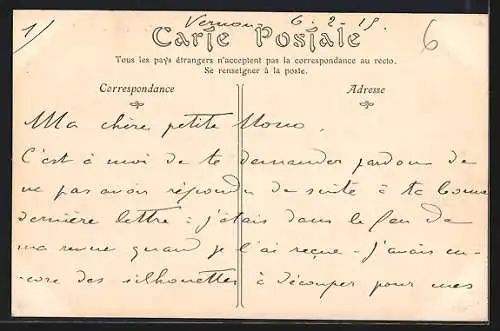 1/
Vernon 6-2-15.
6
Carte Postale
Tous les pays étrangers n'acceptent pas la correspondance au recto.
Se renseigner à la poste.
Correspondance
Adresse
Ma chère petite Nono,
C'est à moi de te demander pardon de
ne pas avoir répondu de suite à ta bonne
dernière lettre : j'étais dans le feu de
ma revue quand je l'ai reçue - J'avais en-
core des silhouettes à découper pour mes